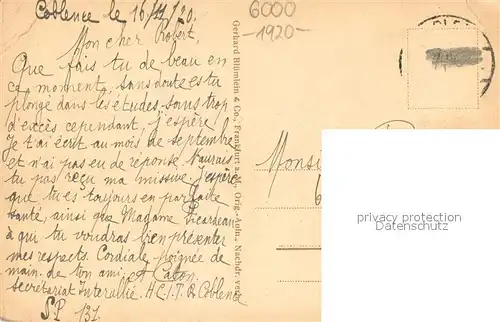 Coblence le 16/11/20.
Mon cher Robert,
Que fais tu de beau en
ce moment, sans doute es tu
plongé dans les études, sans trop
d'excès cependant, j'espère.
Je t'ai écrit au mois de septembre
et n'ai pas eu de réponse. N'aurais
tu pas reçu ma missive. J'espère
que tu es toujours en parfaite
santé ainsi que Madame
à qui tu voudras bien présenter
mes respects. Cordiale poignée de
main de ton ami,
Secrétariat Interallié. H.C.I.T.R. Coblence
S.P. 131.
6000
-1920-
Gerhard Blümlein & Co., Frankfurt a. M., Orig.-Aufn., Nachdr. verb.
Monsi
privacy protection